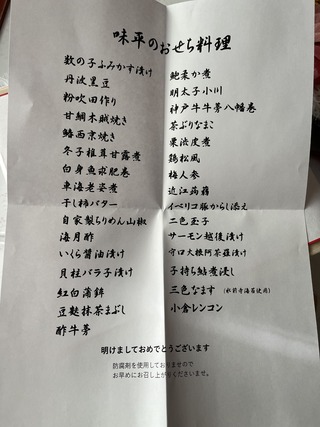 味平のおせち料理
数の子ふみかす漬け
丹波黒豆
粉吹田作り
甘鯛木賊焼き
鰆西京焼き
冬子椎茸甘露煮
白身魚求肥巻
車海老姿煮
干し柿バター
自家製ちりめん山椒
海月酢
いくら醤油漬け
貝柱バラ子漬け
紅白蒲鉾
豆麩抹茶まぶし
酢牛蒡
鮑柔か煮
明太子小川
神戸牛牛蒡八幡巻
茶ぶりなまこ
栗渋皮煮
鶏松風
梅人参
近江蒟蒻
イベリコ豚からし添え
二色玉子
サーモン越後漬け
守口大根阿茶羅漬け
子持ち鮎煮浸し
三色なます (水前寺海苔使用)
小倉レンコン
明けましておめでとうございます
防腐剤を使用しておりませんので
お早めにお召し上がりくださいませ。